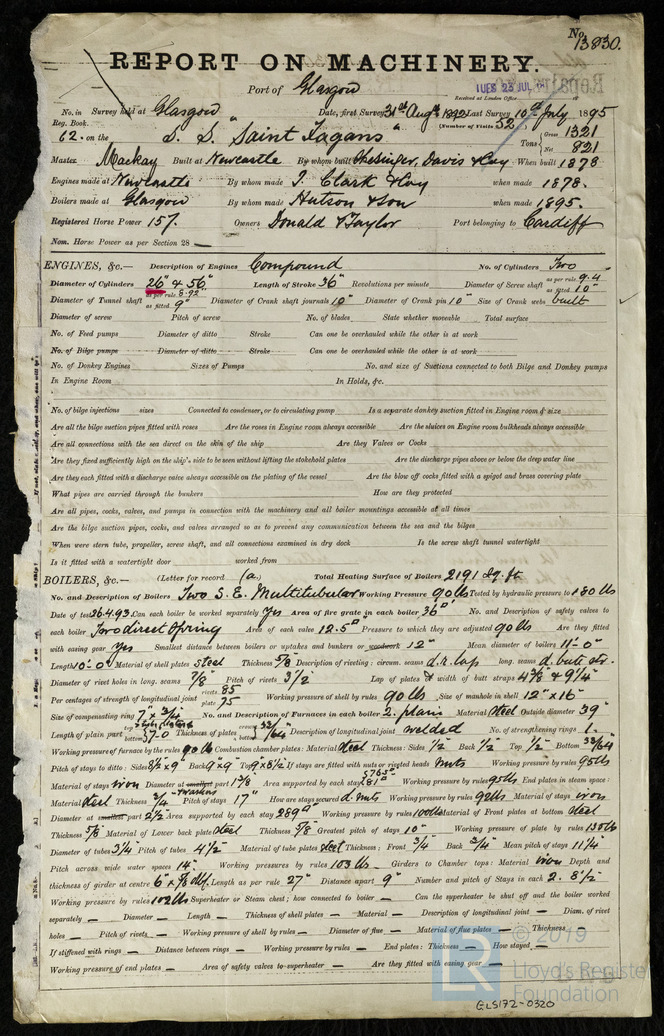 No. 13830.
REPORT ON MACHINERY.
Port of Glasgow
TUES 23 JUL
Received at London Office
No. in Survey held at Glasgow Date, first Survey 31st Augt 1892 Last Survey 10th July 1895
Reg. Book. (Number of Visits 52)
62. on the S. S. "Saint Fagans" Tons Gross 1321 Net 821
Master Mackay Built at Newcastle By whom built Davis & Coy When built 1878
Engines made at Newcastle By whom made J. Clark & Coy when made 1878.
Boilers made at Glasgow By whom made Hutson & Son when made 1895.
Registered Horse Power 157. Owners Donald & Taylor Port belonging to Cardiff
Nom. Horse Power as per Section 28 —
ENGINES, &c.— Description of Engines Compound No. of Cylinders Two
Diameter of Cylinders 26" & 56" Length of Stroke 36" Revolutions per minute Diameter of Screw shaft as per rule 9.4 as fitted 10"
Diameter of Tunnel shaft as per rule 8.92" as fitted 9" Diameter of Crank shaft journals 10" Diameter of Crank pin 10" Size of Crank webs built
Diameter of screw Pitch of screw No. of blades State whether moveable Total surface
No. of Feed pumps Diameter of ditto Stroke Can one be overhauled while the other is at work
No. of Bilge pumps Diameter of ditto Stroke Can one be overhauled while the other is at work
No. of Donkey Engines Sizes of Pumps No. and size of Suctions connected to both Bilge and Donkey pumps
In Engine Room In Holds, &c.
No. of bilge injections sizes Connected to condenser, or to circulating pump Is a separate donkey suction fitted in Engine room & size
Are all the bilge suction pipes fitted with roses Are the roses in Engine room always accessible Are the sluices on Engine room bulkheads always accessible
Are all connections with the sea direct on the skin of the ship Are they Valves or Cocks
Are they fixed sufficiently high on the ship's side to be seen without lifting the stokehold plates Are the discharge pipes above or below the deep water line
Are they each fitted with a discharge valve always accessible on the plating of the vessel Are the blow off cocks fitted with a spigot and brass covering plate
What pipes are carried through the bunkers How are they protected
Are all pipes, cocks, valves, and pumps in connection with the machinery and all boiler mountings accessible at all times
Are the bilge suction pipes, cocks, and valves arranged so as to prevent any communication between the sea and the bilges
When were stern tube, propeller, screw shaft, and all connections examined in dry dock Is the screw shaft tunnel watertight
Is it fitted with a watertight door worked from
BOILERS, &c.— (Letter for record (a.) Total Heating Surface of Boilers 2191 Sq. ft
No. and Description of Boilers Two S. E. Multitubular Working Pressure 90 lbs Tested by hydraulic pressure to 180 lbs
Date of test 26.4.93. Can each boiler be worked separately Yes Area of fire grate in each boiler 36 No. and Description of safety valves to
each boiler Two direct Spring Area of each valve 12.5 Pressure to which they are adjusted 90 lbs Are they fitted
with easing gear Yes Smallest distance between boilers or uptakes and bunkers or woodwork 12" Mean diameter of boilers 11'-0"
Length 10'-0" Material of shell plates steel Thickness 5/8 Description of riveting: circum. seams d.r. lap long. seams d. butt str.
Diameter of rivet holes in long. seams 7/8 Pitch of rivets 3 1/2 Lap of plates & width of butt straps 4 3/8 & 9 1/4
Per centages of strength of longitudinal joint rivets 85 plate 75 Working pressure of shell by rules 90 lbs Size of manhole in shell 12" x 16"
Size of compensating ring 7" x 3/4 No. and Description of Furnaces in each boiler 2. plain Material Steel Outside diameter 39"
Length of plain part top bottom 7.0 Thickness of plates crown bottom 33/64 Description of longitudinal joint welded No. of strengthening rings 1.
Working pressure of furnace by the rules 90 lbs Combustion chamber plates: Material Steel Thickness: Sides 1/2 Back 1/2 Top 1/2 Bottom 33/64
Pitch of stays to ditto: Sides 8 1/2 x 9" Back 9" x 9" Top 9" x 8 1/2 If stays are fitted with nuts or riveted heads nuts Working pressure by rules 95 lbs
Material of stays iron Diameter at smallest part 1 3/8 Area supported by each stay 81 Working pressure by rules 95 lbs End plates in steam space:
Material steel Thickness 3/4 + washers Pitch of stays 17" How are stays secured d. nuts Working pressure by rules 92 lbs Material of stays iron
Diameter at smallest part 2 1/2 Area supported by each stay 289 Working pressure by rules 100 lbs Material of Front plates at bottom steel
Thickness 5/8 Material of Lower back plate steel Thickness 5/8 Greatest pitch of stays 10" Working pressure of plate by rules 130 lbs
Diameter of tubes 3 1/4 Pitch of tubes 4 1/2 Material of tube plates steel Thickness: Front 3/4 Back 3/4 Mean pitch of stays 11 1/4"
Pitch across wide water spaces 14" Working pressures by rules 103 lbs — Girders to Chamber tops: Material iron Depth and
thickness of girder at centre 6" x 5/8 dbl. Length as per rule 27" Distance apart 9" Number and pitch of Stays in each 2. 8 1/2
Working pressure by rules 102 lbs Superheater or Steam chest; how connected to boiler — Can the superheater be shut off and the boiler worked
separately — Diameter — Length — Thickness of shell plates — Material — Description of longitudinal joint — Diam. of rivet
holes — Pitch of rivets — Working pressure of shell by rules — Diameter of flue — Material of flue plates — Thickness —
If stiffened with rings — Distance between rings — Working pressure by rules — End plates: Thickness — How stayed —
Working pressure of end plates — Area of safety valves to superheater — Are they fitted with easing gear —
© 2019
Lloyd's Register
Foundation
GLS172-0320